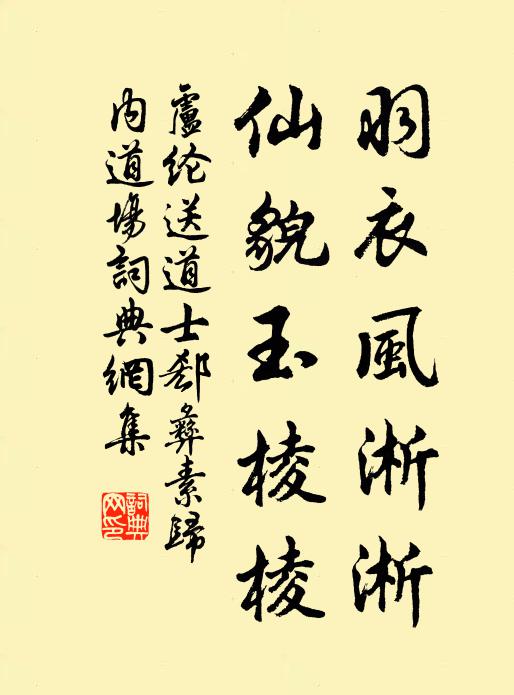 羽衣風淅淅
仙貌玉棱棱
盧纶送道士郄彝素歸
内道場詞典網集
詞典網印